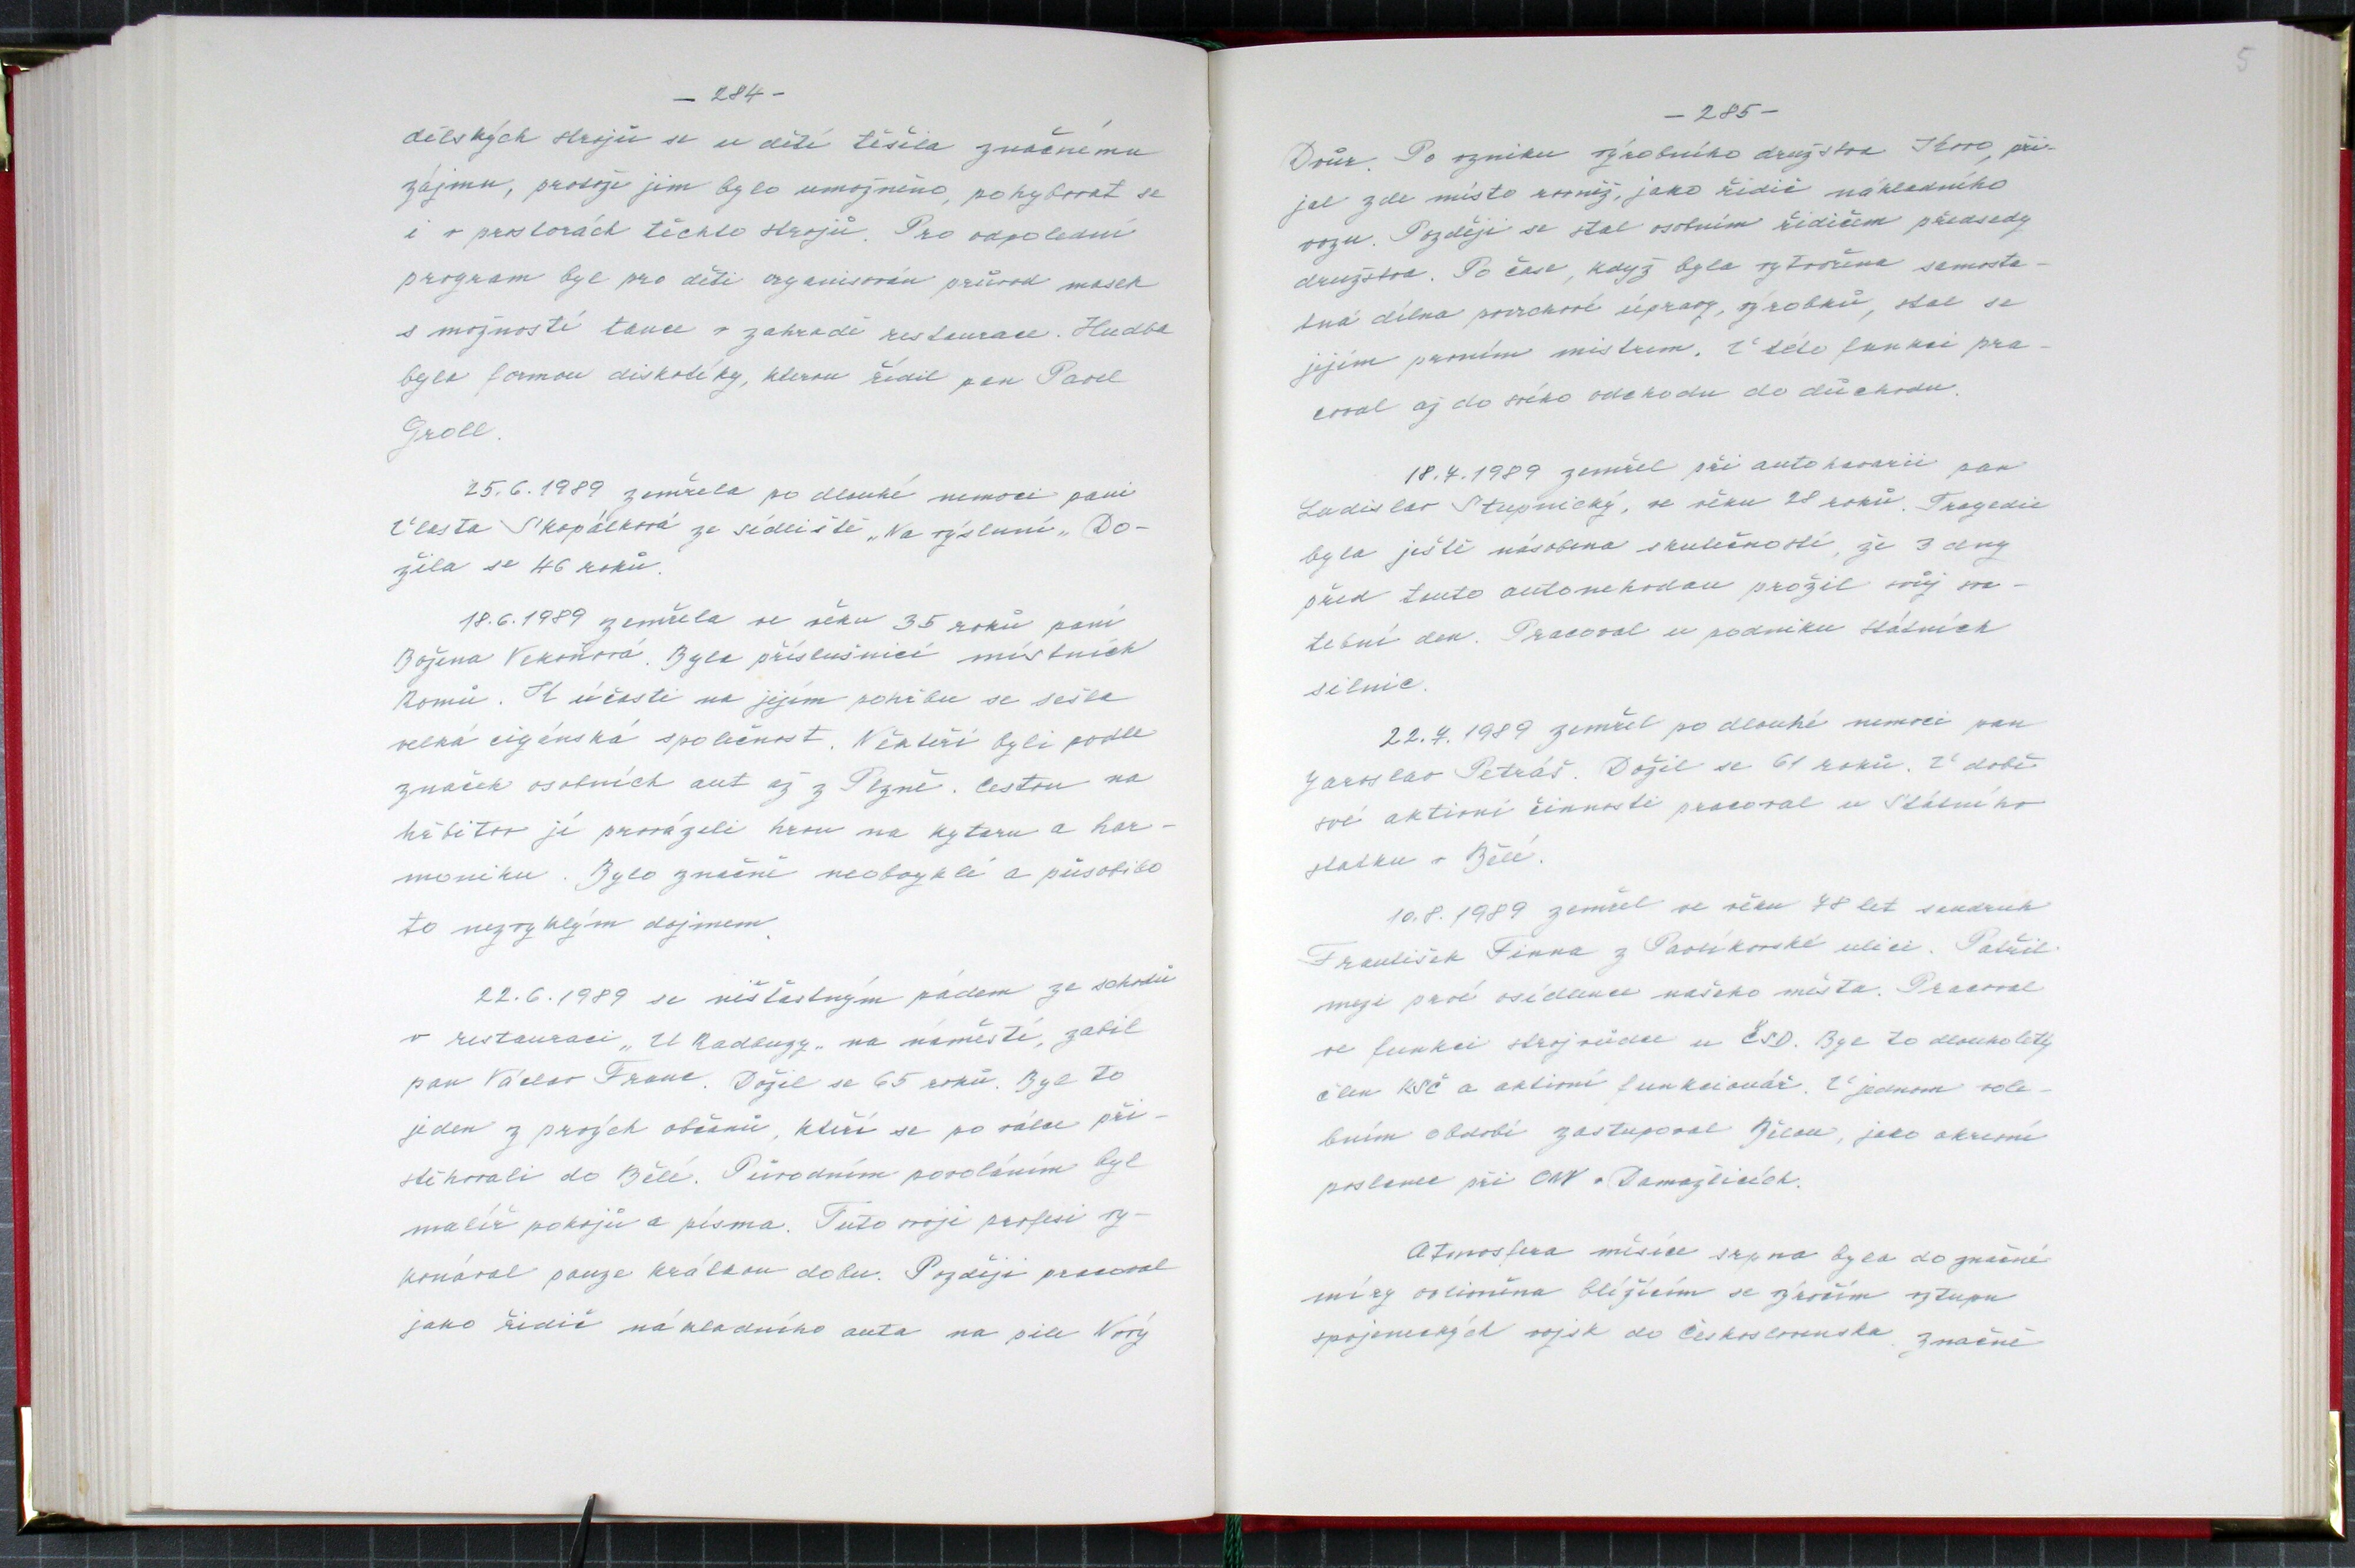 - 284 -
dělských strojů se u dětí těšila značnému
zájmu, protože jim bylo umožněno, pohybovat se
i v prostorách těchto strojů. Pro odpolední
program byl pro děti organisován průvod masek
s možností tance v zahradě restaurace. Hudba
byla formou diskotéky, kterou řídil pan Pavel
Groll.
25.6.1989 zemřela po dlouhé nemoci paní
Vlasta Skopálková ze sídliště „Na výsluní„ Do-
žila se 46 roků.
18.6.1989 zemřela ve věku 35 roků paní
Božena Vekoňová. Byla příslušnicí místních
Romů. K účasti na jejím pohřbu se sešla
velká cigánská společnost. Někteří byli podle
značek osobních aut až z Plzně. Cestou na
hřbitov jí provázeli hrou na kytaru a har-
moniku. Bylo značně neobvyklé a působilo
to nezvyklým dojmem.
22.6.1989 se nešťastným pádem ze schodů
v restauraci „U Radbuzy„ na náměstí, zabil
pan Václav Franc. Dožil se 65 roků. Byl to
jeden z prvých občanů, kteří se po válce při-
stěhovali do Bělé. Původním povoláním byl
malíř pokojů a písma. Tuto svoji profesi vy-
konával pouze krátkou dobu. Později pracoval
jako řidič nákladního auta na pile Nový
5
- 285 -
Dvůr. Po vzniku výrobního družstva Kovo, při-
jal zde místo rovněž, jako řidič nákladního
vozu. Později se stal osobním řidičem předsedy
družstva. Po čase, když byla vytvořena samosta-
tná dílna povrchové úpravy, výrobků, stal se
jejím prvním mistrem. V této funkci pra-
coval až do svého odchodu do důchodu.
18.7.1989 zemřel při autohavarii pan
Ladislav Stupnický, ve věku 28 roků. Tragedie
byla ještě násobena skutečností, že 3 dny
před touto autonehodou prožil svůj sva-
tební den. Pracoval u podniku státních
silnic.
22.7.1989 zemřel po dlouhé nemoci pan
Jaroslav Petráš. Dožil se 61 roků. V době
své aktivní činnosti pracoval u Státního
statku v Bělé.
10.8.1989 zemřel ve věku 78 let soudruh
František Finna z Pavlíkovské ulici. Patřil
mezi prvé osídlence našeho města. Pracoval
ve funkci strojvůdce u ČSD. Byl to dlouholetý
člen KSČ a aktivní funkcionář. V jednom vole-
bním období zastupoval Bělou, jako okresní
poslance při ONV v Domažlicích.
Atmosfera měsíce srpna byla do značné
míry ovlivněna blížícím se výročím vstupu
spojeneckých vojsk do Československa. Značně